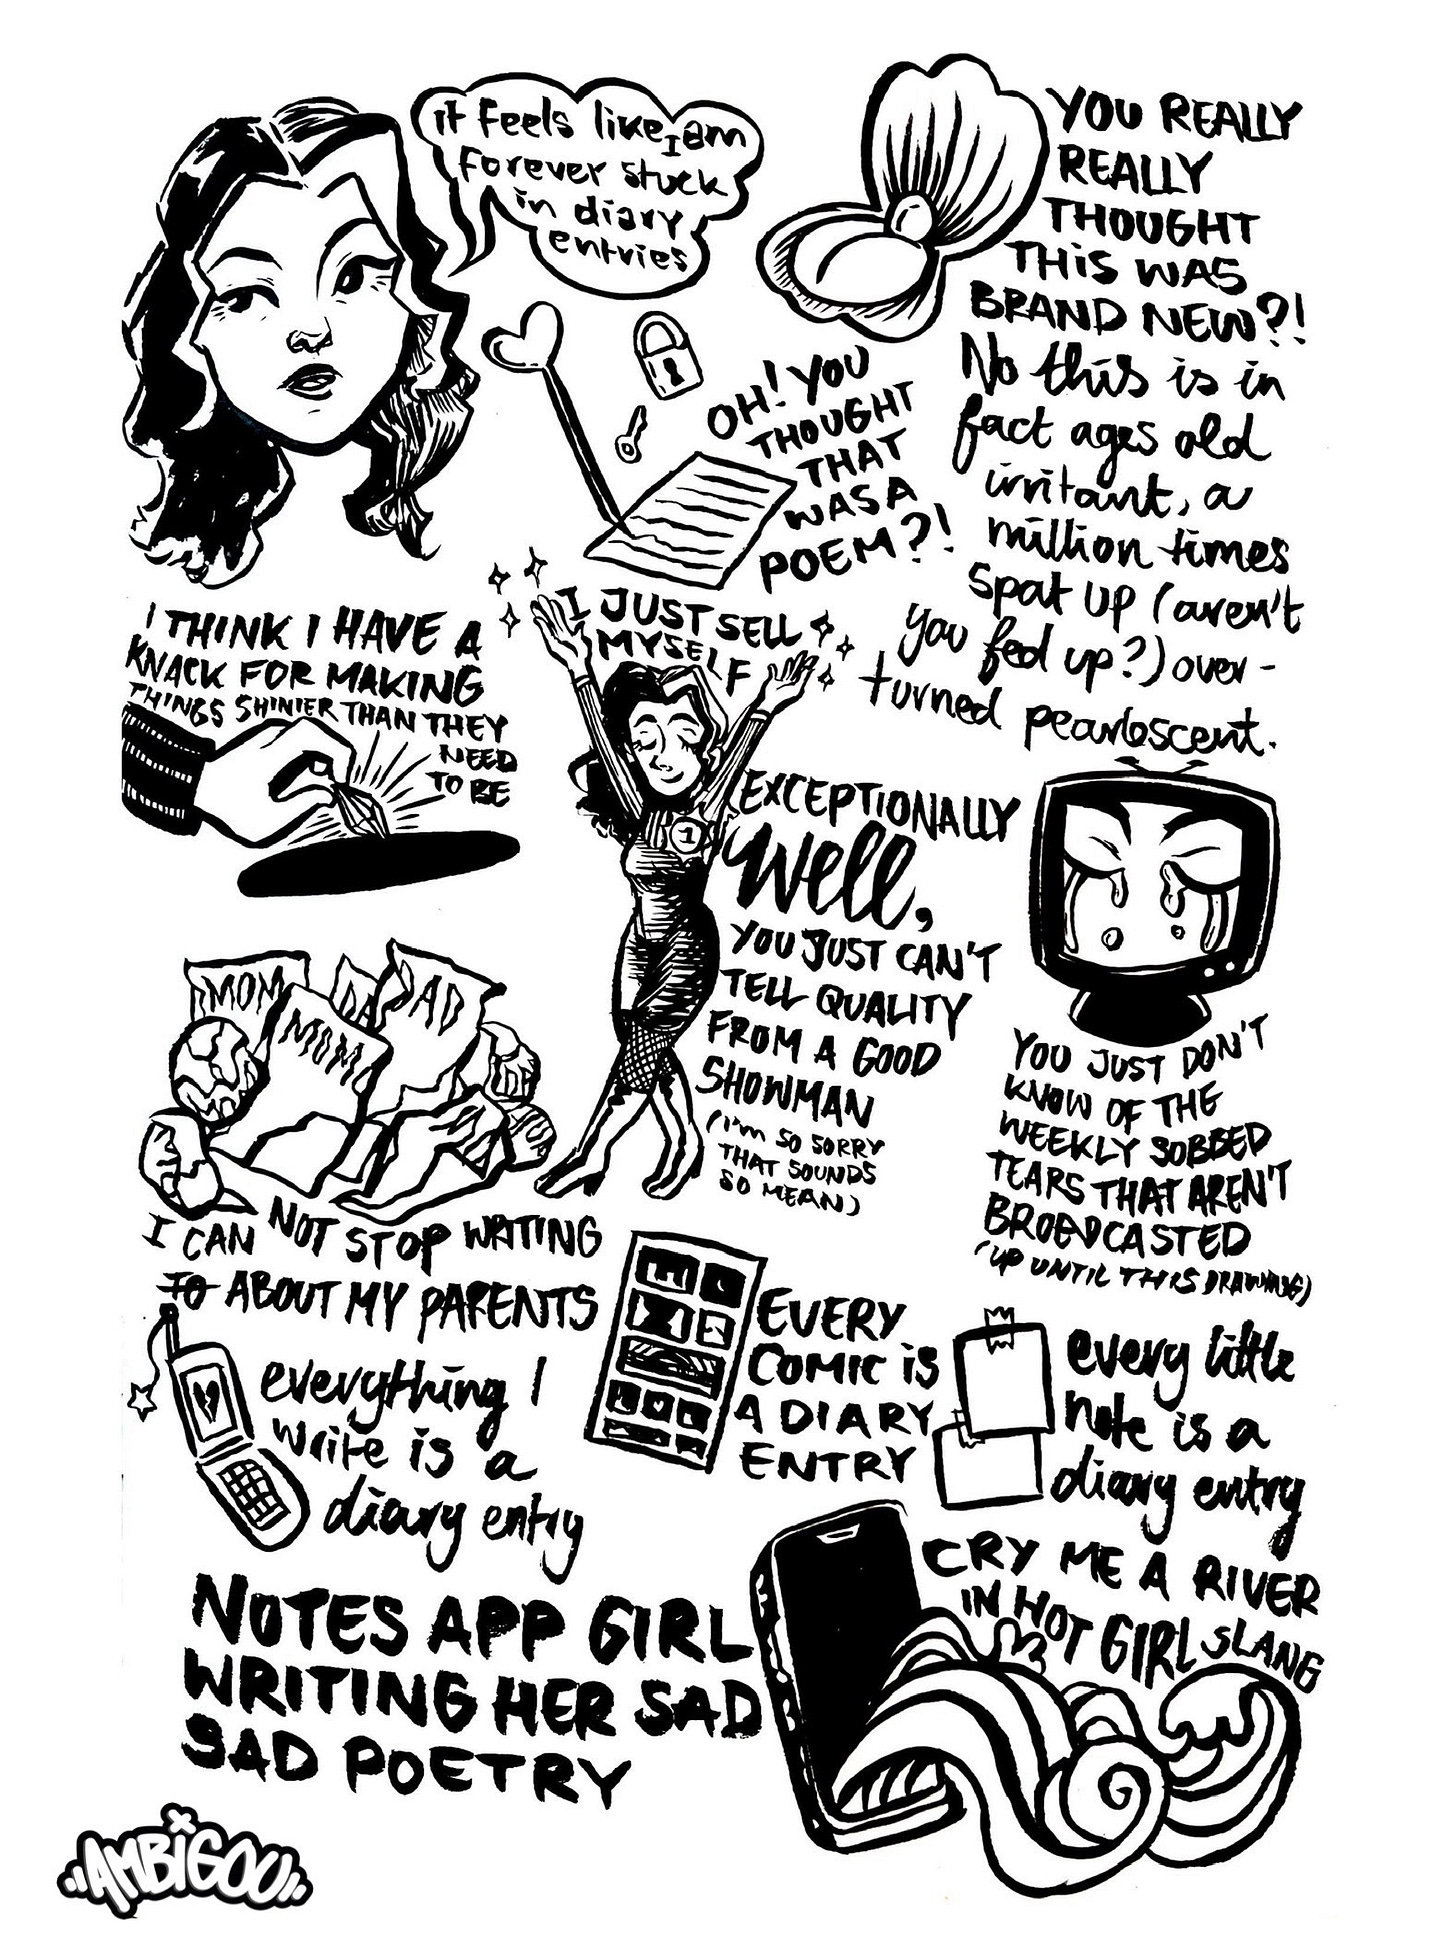 it feels like I am
forever stuck
in diary
entries
YOU REALLY
REALLY
THOUGHT
THIS WAS
BRAND NEW?!
No this is in
fact ages old
irritant, a
million times
spat up (aren't
you fed up?) over-
turned pearlescent.
OH! YOU
THOUGHT
THAT
WAS A
POEM?!
I THINK I HAVE A
KNACK FOR MAKING
THINGS SHINIER THAN THEY
NEED
TO BE
I JUST SELL
MYSELF
1
EXCEPTIONALLY
Well,
YOU JUST CAN'T
TELL QUALITY
FROM A GOOD
SHOWMAN
(I'm SO SORRY
THAT SOUNDS
SO MEAN)
YOU JUST DON'T
KNOW OF THE
WEEKLY SOBBED
TEARS THAT AREN'T
BROADCASTED
(UP UNTIL THIS DRAWING)
MOM
DA
DAD
MOM
I CAN NOT STOP WRITING
TO ABOUT MY PARENTS
everything I
write is a
diary entry
EVERY
COMIC is
A DIARY
ENTRY
every little
note is a
diary entry
NOTES APP GIRL
WRITING HER SAD
SAD POETRY
CRY ME A RIVER
IN HOT GIRL SLANG
AMBIGOU